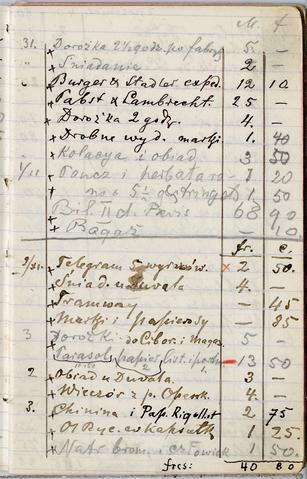 M. f
31. Dorożka 2½ godz. po fabryc 5. –
" Śniadanie 2 –
" Burger & Stadler exped. 12 10
Pabst & Lambrecht. 25 –
Dorożka 2 godz. 4. –
Drobne wyd. marki 1. 40
Kolacya i obiad 3 50
1/11 Poncz i herbata 1 20
5½ 1 50
Bil. II cl. Paris 68 90
Bagaż 10
fr. c.
Telegram 5 wyrazów. × 2 50.
Śniad. u Duvala 4. –
Tramway – 45
Marki i papierosy – 85
3 Dorożki do Cibor. i Magaz. 5 –
Parasol, papier list. i 13 50
2 Obiad u Duvala. 3 –
Wieczór z p. 4. –
3. Chinina i Pap. Rigollot 2 75
Ol Ryc. w Kapsułk 1 25.
Natr brom. i 1 50.
frcs: 40 80